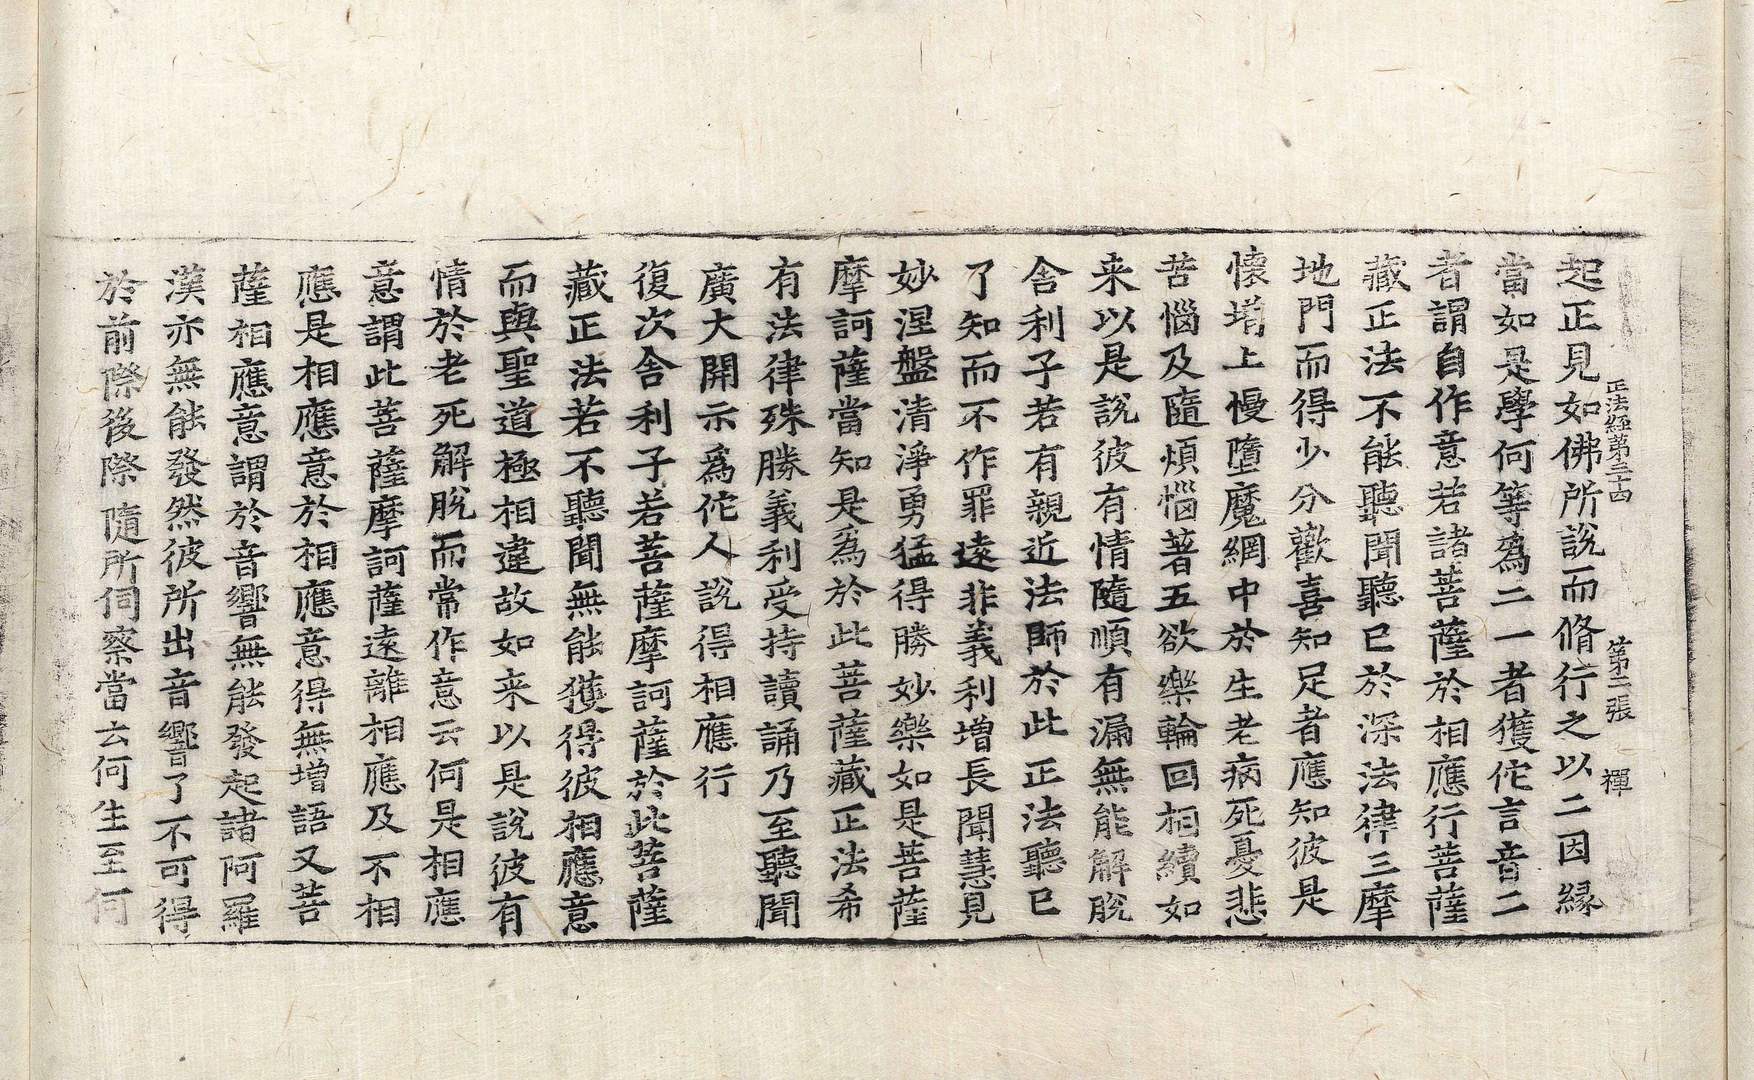 正法經第三十四 第二張 禪
起正見如佛所說而脩行之以二因緣
當如是學何等爲二一者獲佗言音二
者謂自作意若諸菩薩於相應行菩薩
藏正法不能聽聞聽已於深法律三摩
地門而得少分歡喜知足者應知彼是
懷增上慢墮魔網中於生老病死憂悲
苦惱及隨煩惱著五欲樂輪回相續如
来以是說彼有情隨順有漏無能解脫
舍利子若有親近法師於此正法聽已
了知而不作罪遠非義利增長聞慧見
妙涅盤清淨勇猛得勝妙樂如是菩薩
摩訶薩當知是爲於此菩薩藏正法希
有法律殊勝義利受持讀誦乃至聽聞
廣大開示爲佗人說得相應行
復次舍利子若菩薩摩訶薩於此菩薩
藏正法若不聽聞無能獲得彼相應意
而與聖道極相違故如来以是說彼有
情於老死解脫而常作意云何是相應
意謂此菩薩摩訶薩遠離相應及不相
應是相應意於相應意得無增語又菩
薩相應意謂於音響無能發起諸阿羅
漢亦無能發然彼所出音響了不可得
於前際後際隨所伺察當云何生至何